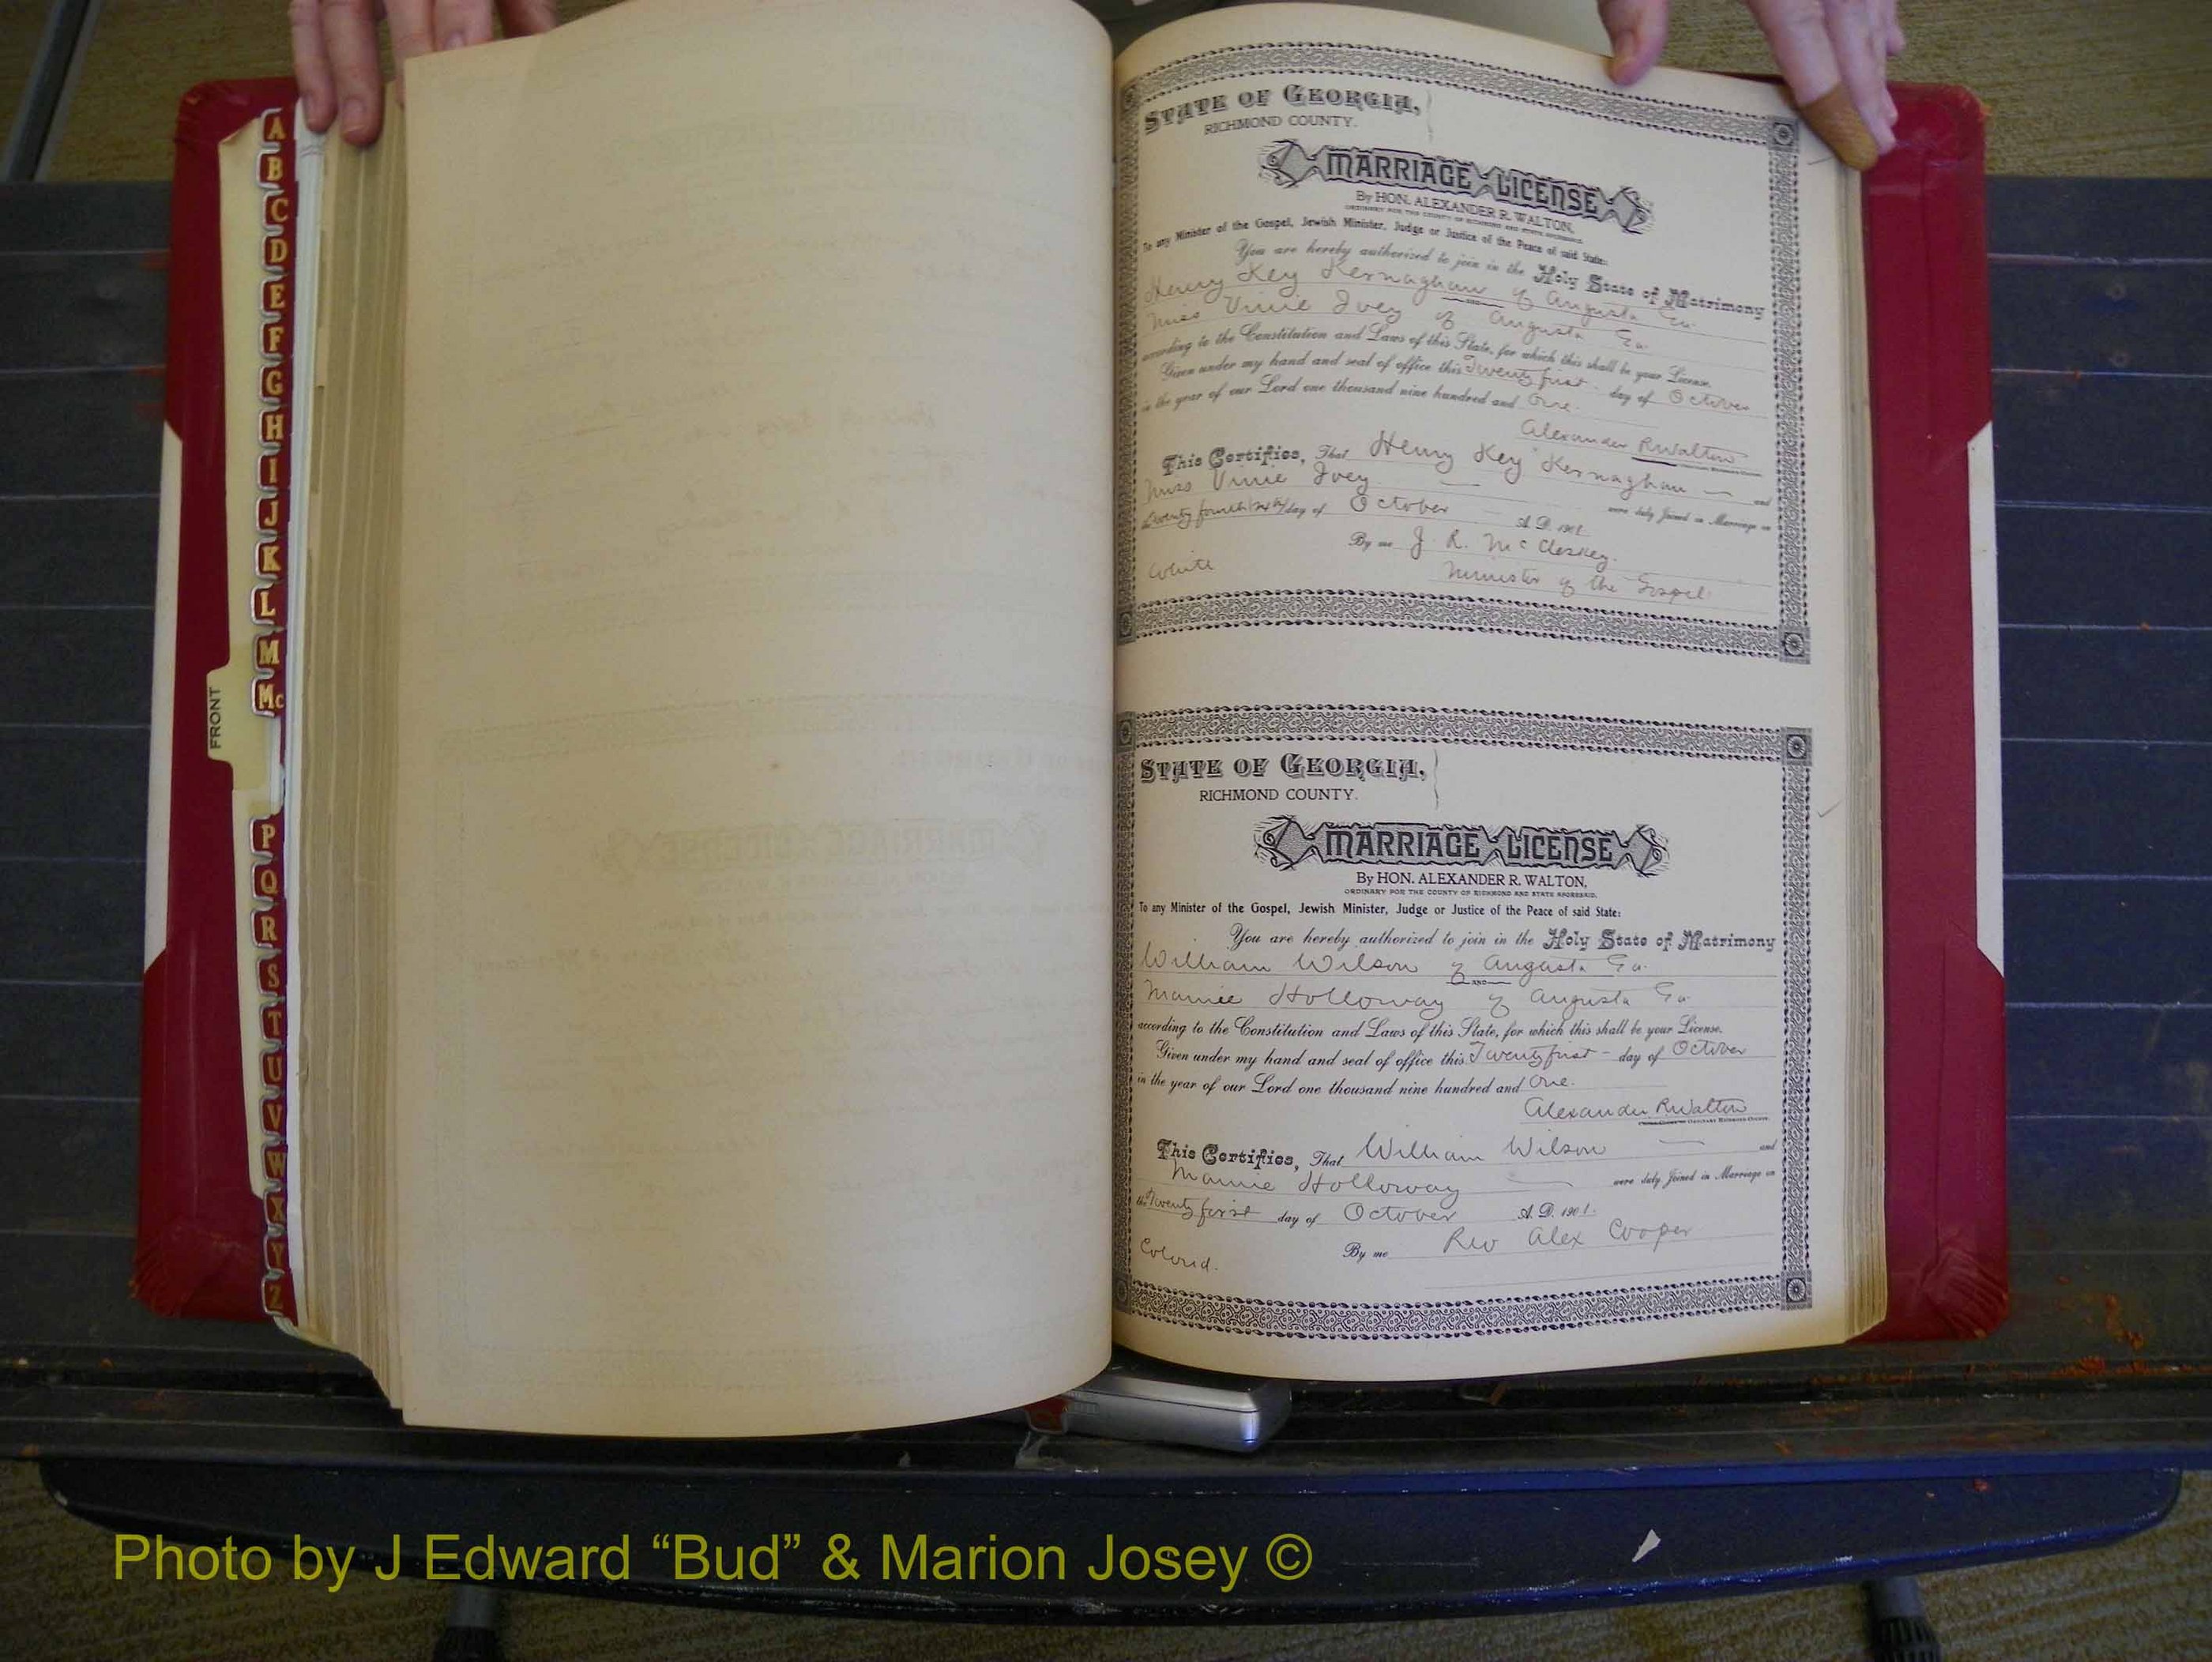 A
B
C
D
E
F
G
H
I
J
K
L
M
Mc
FRONT
P
Q
R
S
T
U
V
W
X
Y
Z
STATE OF GEORGIA,
RICHMOND COUNTY.
MARRIAGE LICENSE
By HON. ALEXANDER R. WALTON,
ORDINARY FOR THE COUNTY OF RICHMOND AND STATE AFORESAID.
To any Minister of the Gospel, Jewish Minister, Judge or Justice of the Peace of said State:
You are hereby authorized to join in the Holy State of Matrimony
Henry Key Kernaghan of Augusta Ga.
AND
Miss Vinie Ivey of Augusta Ga.
according to the Constitution and Laws of this State, for which this shall be your License.
Given under my hand and seal of office this Twenty first day of October
in the year of our Lord one thousand nine hundred and One.
Alexander R Walton
This Certifies, That Henry Key Kernaghan and
Miss Vinie Ivey were duly Joined in Marriage on
Twenty fourth day of October A. D. 1901.
By me J. R. McCleskey.
White Minister of the Gospel.
STATE OF GEORGIA,
RICHMOND COUNTY.
MARRIAGE LICENSE
By HON. ALEXANDER R. WALTON,
ORDINARY FOR THE COUNTY OF RICHMOND AND STATE AFORESAID.
To any Minister of the Gospel, Jewish Minister, Judge or Justice of the Peace of said State:
You are hereby authorized to join in the Holy State of Matrimony
William Wilson of Augusta Ga.
AND
Mamie Holloway of Augusta Ga
according to the Constitution and Laws of this State, for which this shall be your License.
Given under my hand and seal of office this Twenty first – day of October
in the year of our Lord one thousand nine hundred and One.
Alexander R Walton
This Certifies, That William Wilson and
Mamie Holloway were duly Joined in Marriage on
the Twenty first day of October A. D. 1901.
Colored. By me Rev Alex Cooper
Photo by J Edward “Bud” & Marion Josey ©